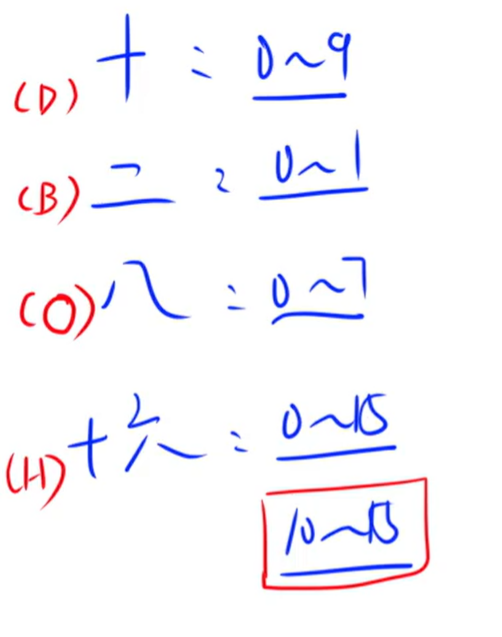 (D) 十 : 0~9
(B) 二 : 0~1
(O) 八 : 0~7
(H) 十六 : 0~15
10~15